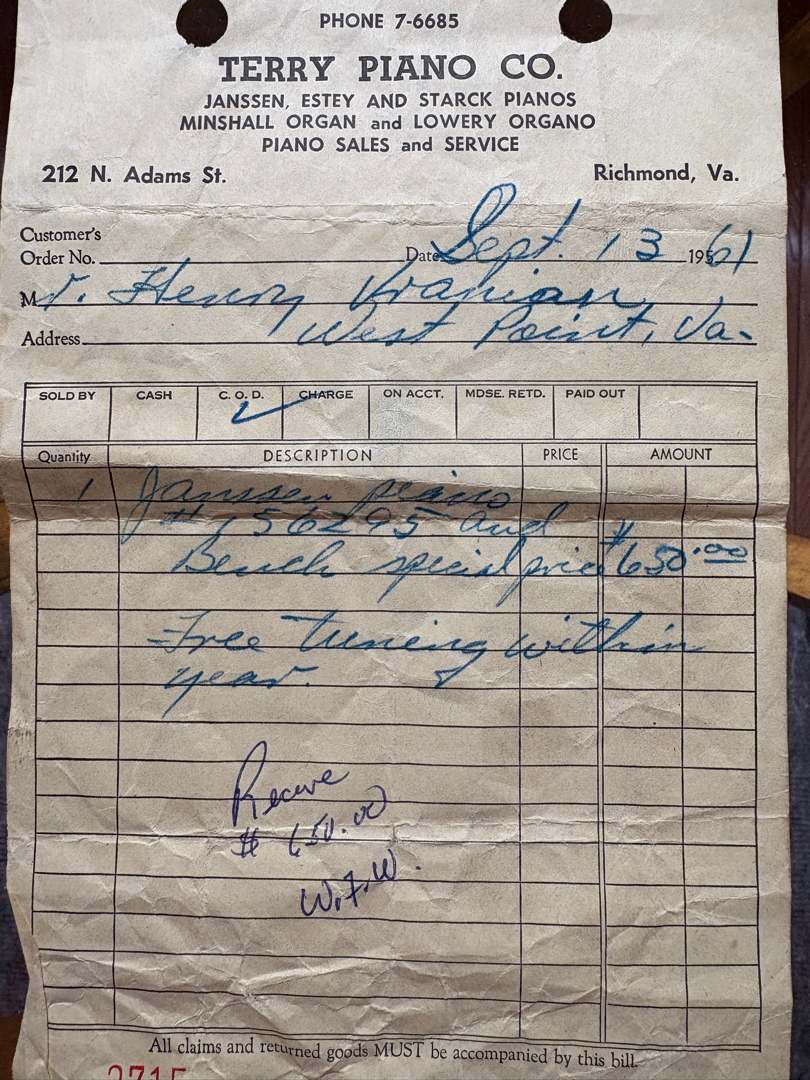 PHONE 7-6685
TERRY PIANO CO.
JANSSEN, ESTEY AND STARCK PIANOS
MINSHALL ORGAN and LOWERY ORGANO
PIANO SALES and SERVICE
212 N. Adams St. Richmond, Va.
Customer's
Order No. Date Sept. 13 1961
Mr. Henry Kranian
Address West Point, Va.
SOLD BY CASH C. O. D. CHARGE ON ACCT. MDSE. RETD. PAID OUT
Quantity DESCRIPTION PRICE AMOUNT
1 Janssen piano
# 156295 and
Bench special price $650.00
Free tuning within
year.
Receive
$ 650.00
W.F.W.
All claims and returned goods MUST be accompanied by this bill.
2715